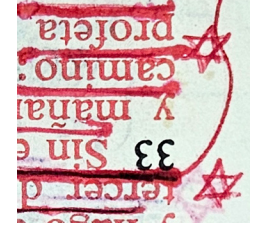 y hago
tercer d
33 Sin e
y mañan
camino;
profeta